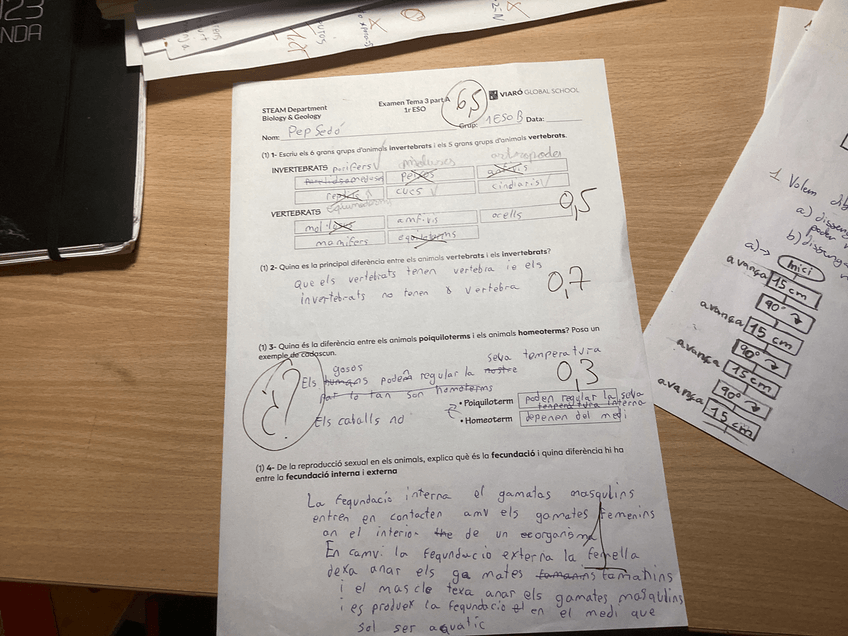 023
NDA
STEAM Department
Biology & Geology
Examen Tema 3 part A
1r ESO
6,5
VIARÓ GLOBAL SCHOOL
Nom: Pep Sedó
Grup: 1ESO B Data:
(1) 1- Escriu els 6 grans grups d'animals invertebrats i els 5 grans grups d'animals vertebrats.
INVERTEBRATS porifers moluscs artropodes
peixos anfivis
reptils cucs cindiaris
VERTEBRATS
0,5
amfivis ocells
mamifers
(1) 2- Quina es la principal diferència entre els animals vertebrats i els invertebrats?
Que els vertebrats tenen vertebra i e els
invertebrats no tenen vertebra
0,7
(1) 3- Quina és la diferència entre els animals poiquiloterms i els animals homeoterms? Posa un
exemple de cadascun.
gosos seva temperatura
Els humans poden regular la nostre
par lo tan son homoterms
0,3
Els caballs no
• Poiquiloterm poden regular la seva
temperatura interna
• Homeoterm depenen del medi
(1) 4- De la reproducció sexual en els animals, explica què és la fecundació i quina diferència hi ha
entre la fecundació interna i externa
La fequndacio interna el gamatas masqulins
entren en contacten amv els gamates femenins
an el interior the de un organisma
1
En camvi la fequnducio externa la femella
dexa anar els gamates tamanins tamanins
i el mascle texa anar els gamates masqulins
i es produex la fequndacio el en el medi que
sol ser aquatic
1. Volem
a) disseny
b) dissenya
a)→ Inici
avança 15 cm
90°
avança 15 cm
90°
avança 15 cm
90°
avança 15 cm